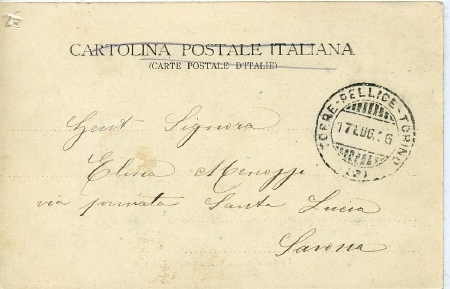 CARTOLINA POSTALE ITALIANA
(CARTE POSTALE D'ITALIE)
TORRE-PELLICE-TORINO
17 LUG.
(2)
Gent Signora
Elina
via privata Santa Lucia
Savona